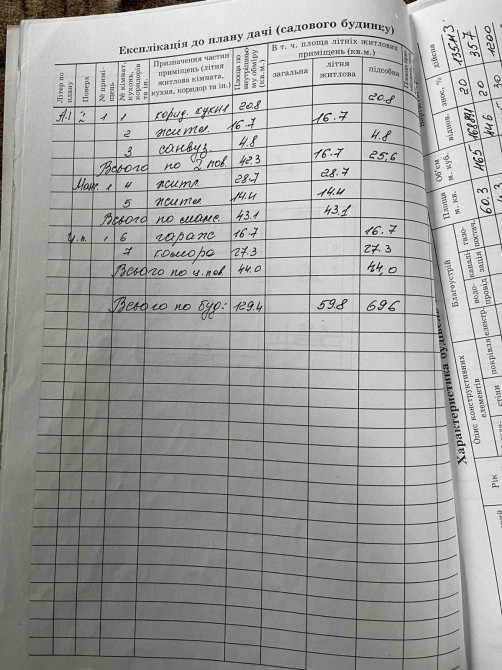 Експлікація до плану дачі (садового будинку)
Літер по плану
Поверх
№ приміщень
№ кімнат, кухонь, коридорів та ін.
Призначення частин приміщень (літня житлова кімната, кухня, коридор та ін.)
Площа по внутрішньому обміру (кв.м.)
В т. ч. площа літніх житлових приміщень (кв.м.)
загальна
літня житлова
підсобна
А-1 2 1 1 корид. кухня 20.8 20.8
2 житл. 16.7 16.7
3 санвуз. 4.8 4.8
Всього по 2 пов. 42.3 16.7 25.6
Манс. 1 4 житл. 28.7 28.7
5 житл. 14.4 14.4
Всього по манс. 43.1 43.1
ц.п. 1 6 гараж 16.7 16.7
7 комора 27.3 27.3
Всього по ц.пов 44.0 44.0
Всього по буд: 129.4 59.8 69.6
Характеристика
Опис конструктивних елементів
Благоустрій
Площа м. кв.
Об'єм м. куб.
віднов.
знос, %
дійсна
Рік
стіни
покрівля
електр.
водопровід
каналізація
газопостач.
60.3 465 16889 20 13543
446 20 357
30 1200